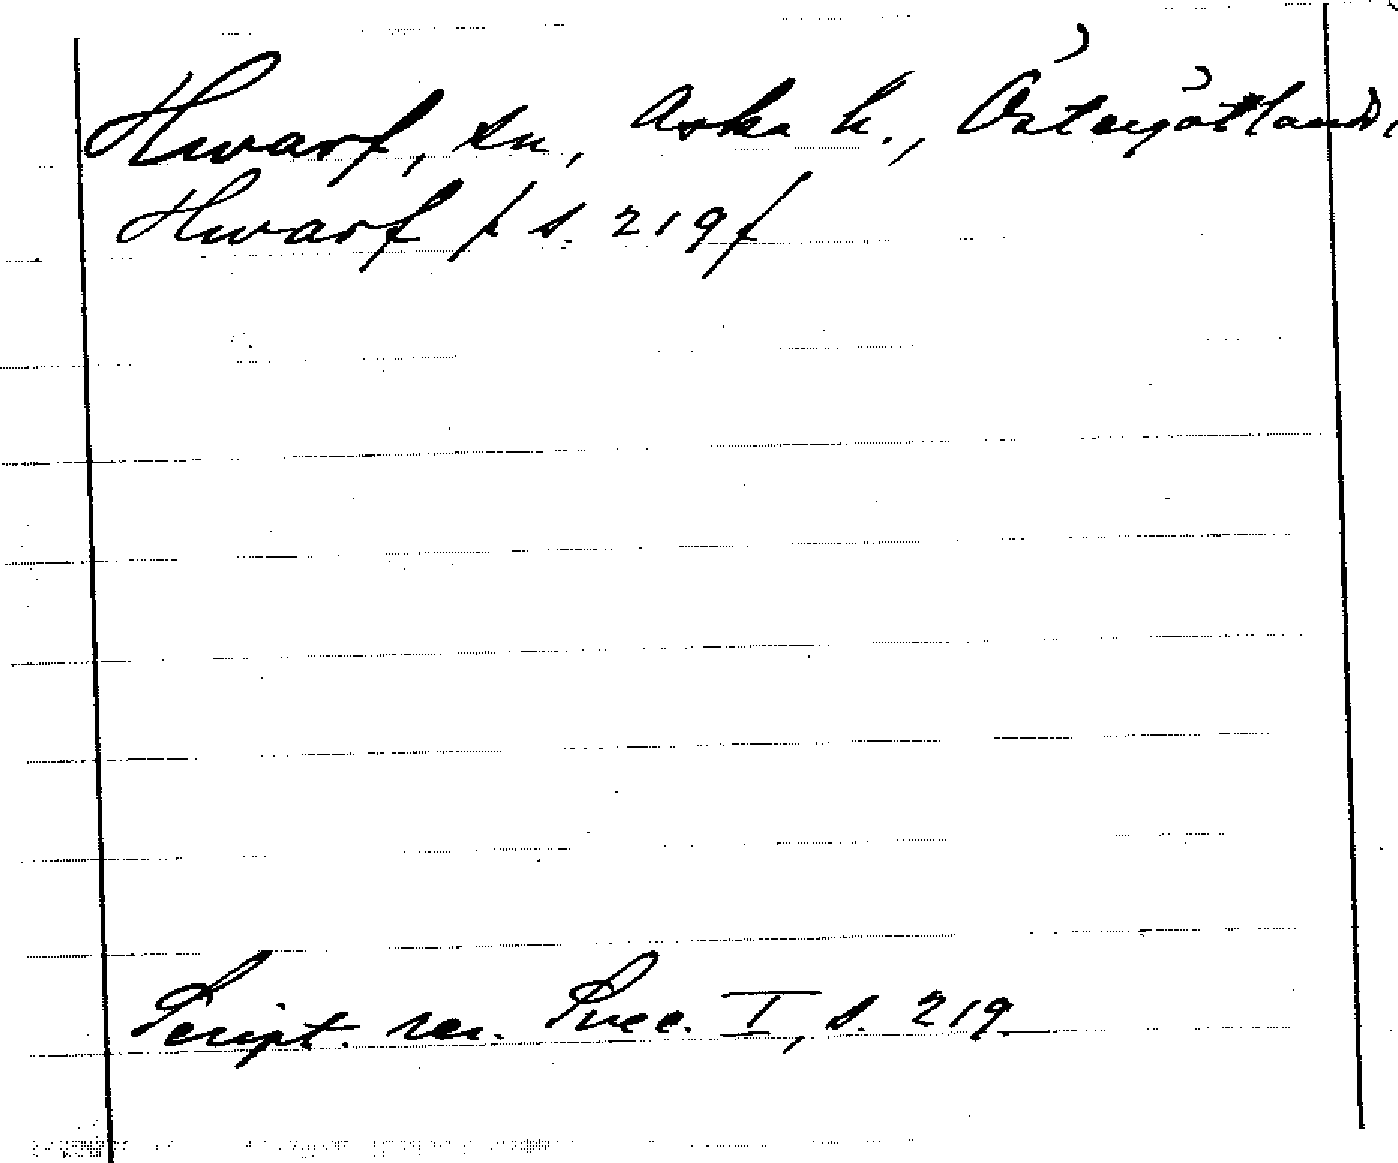 Hwarf, sn, Aska h., Östergötland,
Hwarf / s. 219 /
Script. rer. Suec. I, s. 219